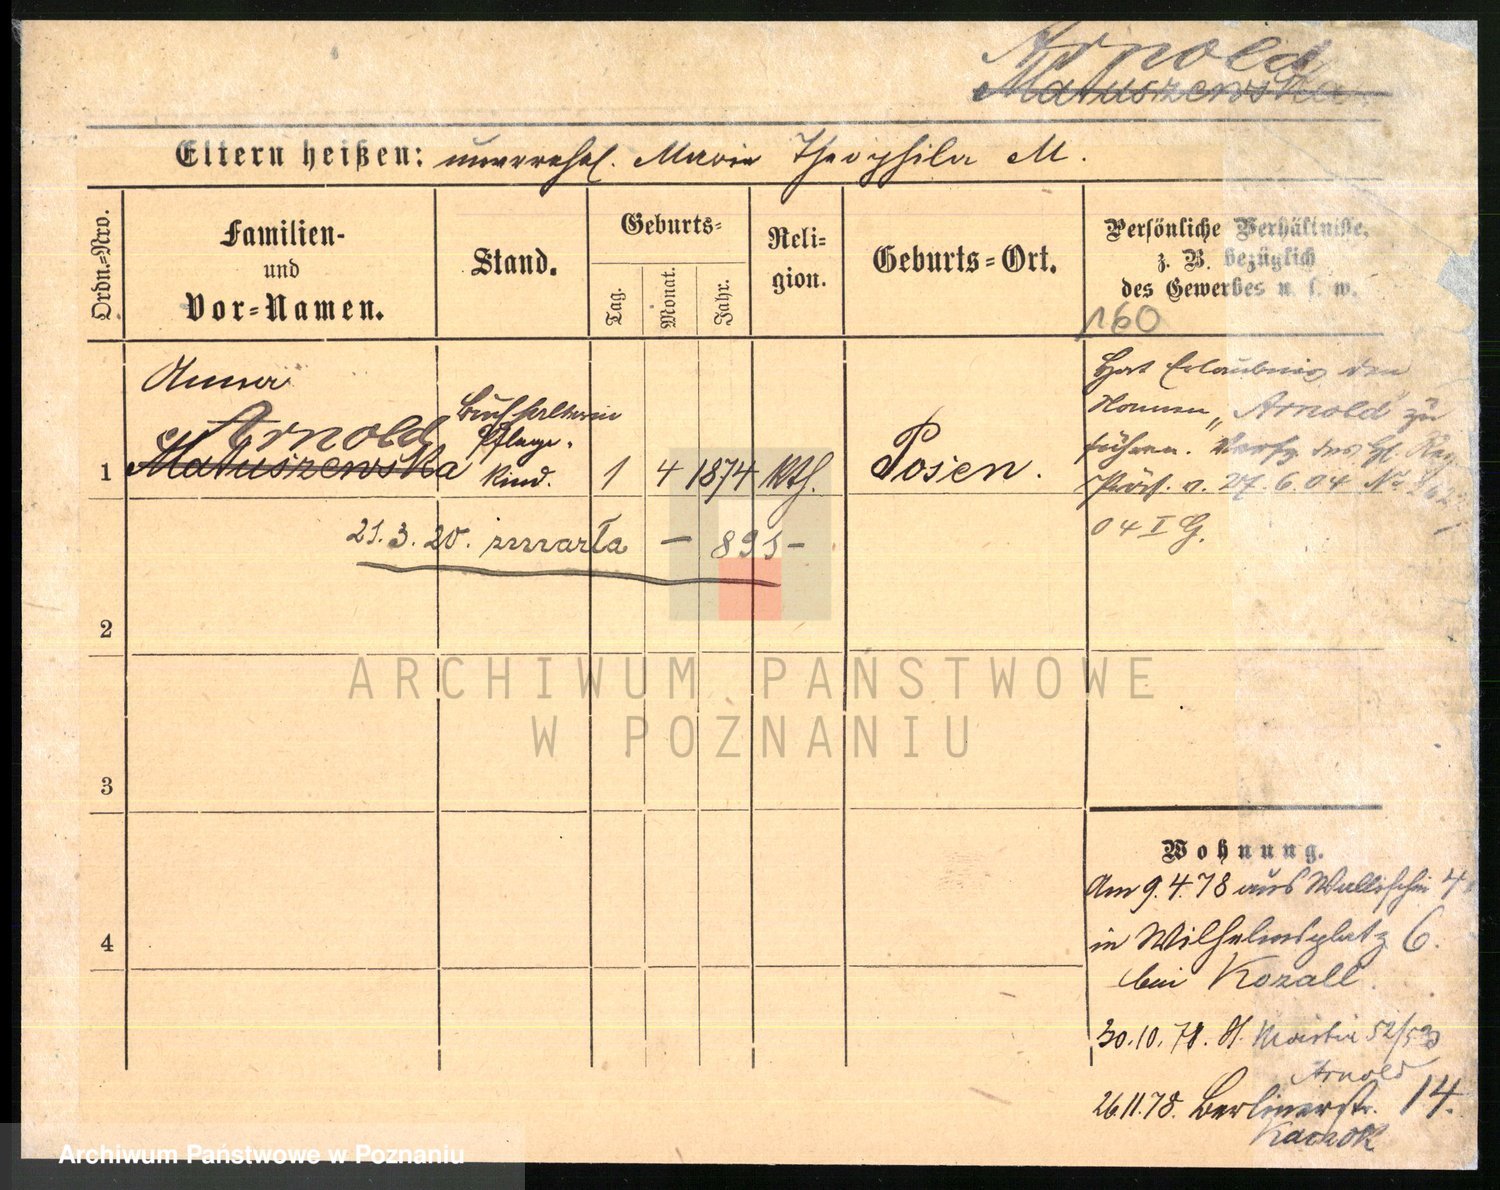 Arnold
Matuszewska
Eltern heißen: unverehel. Marie Theophila M.
Ordn.=Nro.
Familien-
und
Vor=Namen.
Stand.
Geburts=
Tag.
Monat.
Jahr.
Reli=
gion.
Geburts=Ort.
Persönliche Verhältnisse,
z. B. bezüglich
des Gewerbes u. s. w.
160
1
Anna
Arnold
Matuszewska
Buchhalterin
Pflege-
kind.
1
4
1874
kth.
Posen.
Hat Erlaubnis den
Namen „Arnold" zu
führen. Verfg des H. Reg.
Präs. v. 27.6.04 No
04 I G.
21.3.20. zmarła – 891 –
2
3
4
ARCHIWUM PAŃSTWOWE
W POZNANIU
Wohnung.
Am 9.4.78 aus Wallischei 4
in Wilhelmsplatz 6.
bei Kozall.
30.10.78. St. Martin 52/53
Arnold
26.11.78. Berlinerstr. 14.
Archiwum Państwowe w Poznaniu